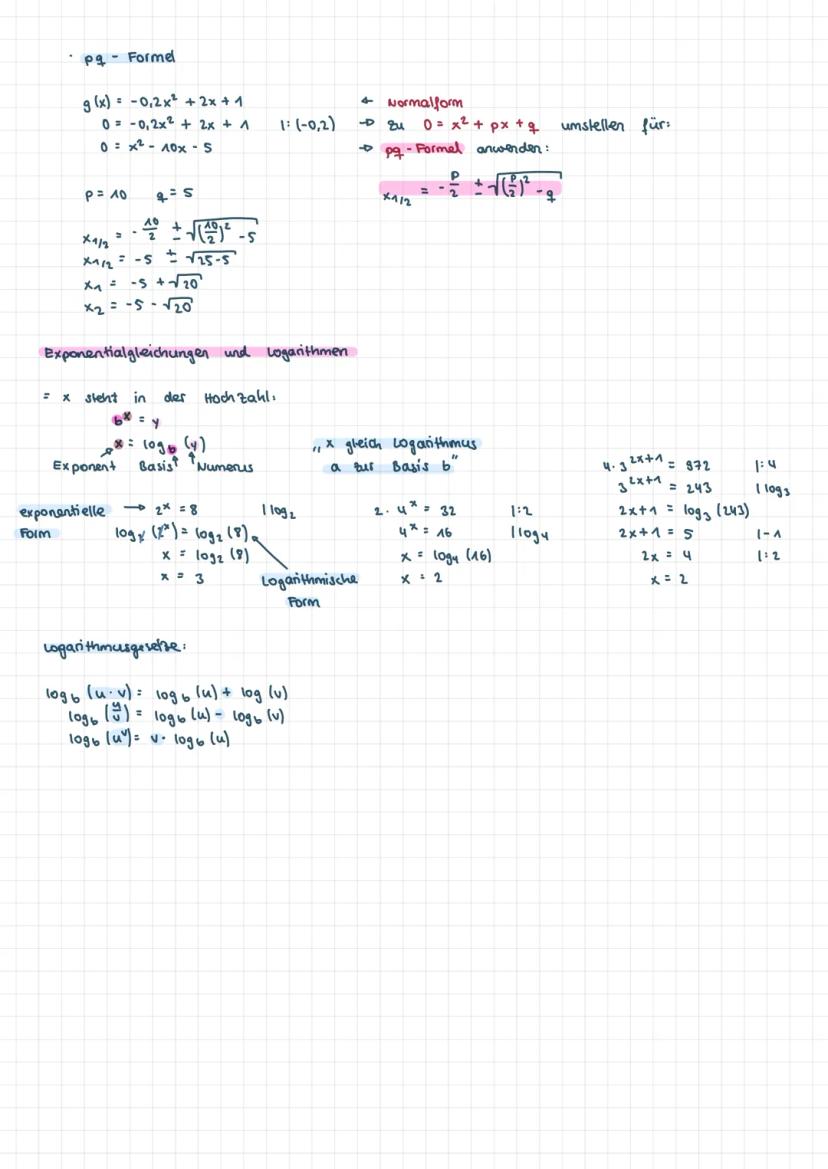 · pq - Formel
g(x) = -0,2x² + 2x + 1 ← Normalform
0 = -0,2x² + 2x + 1 |: (-0,2) → zu 0 = x² + px + q umstellen für:
0 = x² - 10x - 5 → pq - Formel anwenden:
x₁/₂ = - p/2 ± √((p/2)² - q)
p = 10 q = 5
x₁/₂ = - 10/2 ± √((10/2)² - 5)
x₁/₂ = -5 ± √(25-5)
x₁ = -5 + √20
x₂ = -5 - √20
Exponentialgleichungen und Logarithmen
= x steht in der Hochzahl:
bˣ = y
x = log_b (y)
Exponent Basis Numerus
„x gleich Logarithmus
a zur Basis b"
exponentielle → 2ˣ = 8 | log₂
Form
log₂ (2ˣ) = log₂ (8)
x = log₂ (8)
x = 3
Logarithmische
Form
2 · 4ˣ = 32 |:2
4ˣ = 16 | log₄
x = log₄ (16)
x = 2
4 · 3²ˣ⁺¹ = 972 |:4
3²ˣ⁺¹ = 243 | log₃
2x+1 = log₃ (243)
2x+1 = 5 |-1
2x = 4 |:2
x = 2
Logarithmusgesetze:
log_b (u · v) = log_b (u) + log (v)
log_b (u/v) = log_b (u) - log_b (v)
log_b (uᵛ) = v · log_b (u)